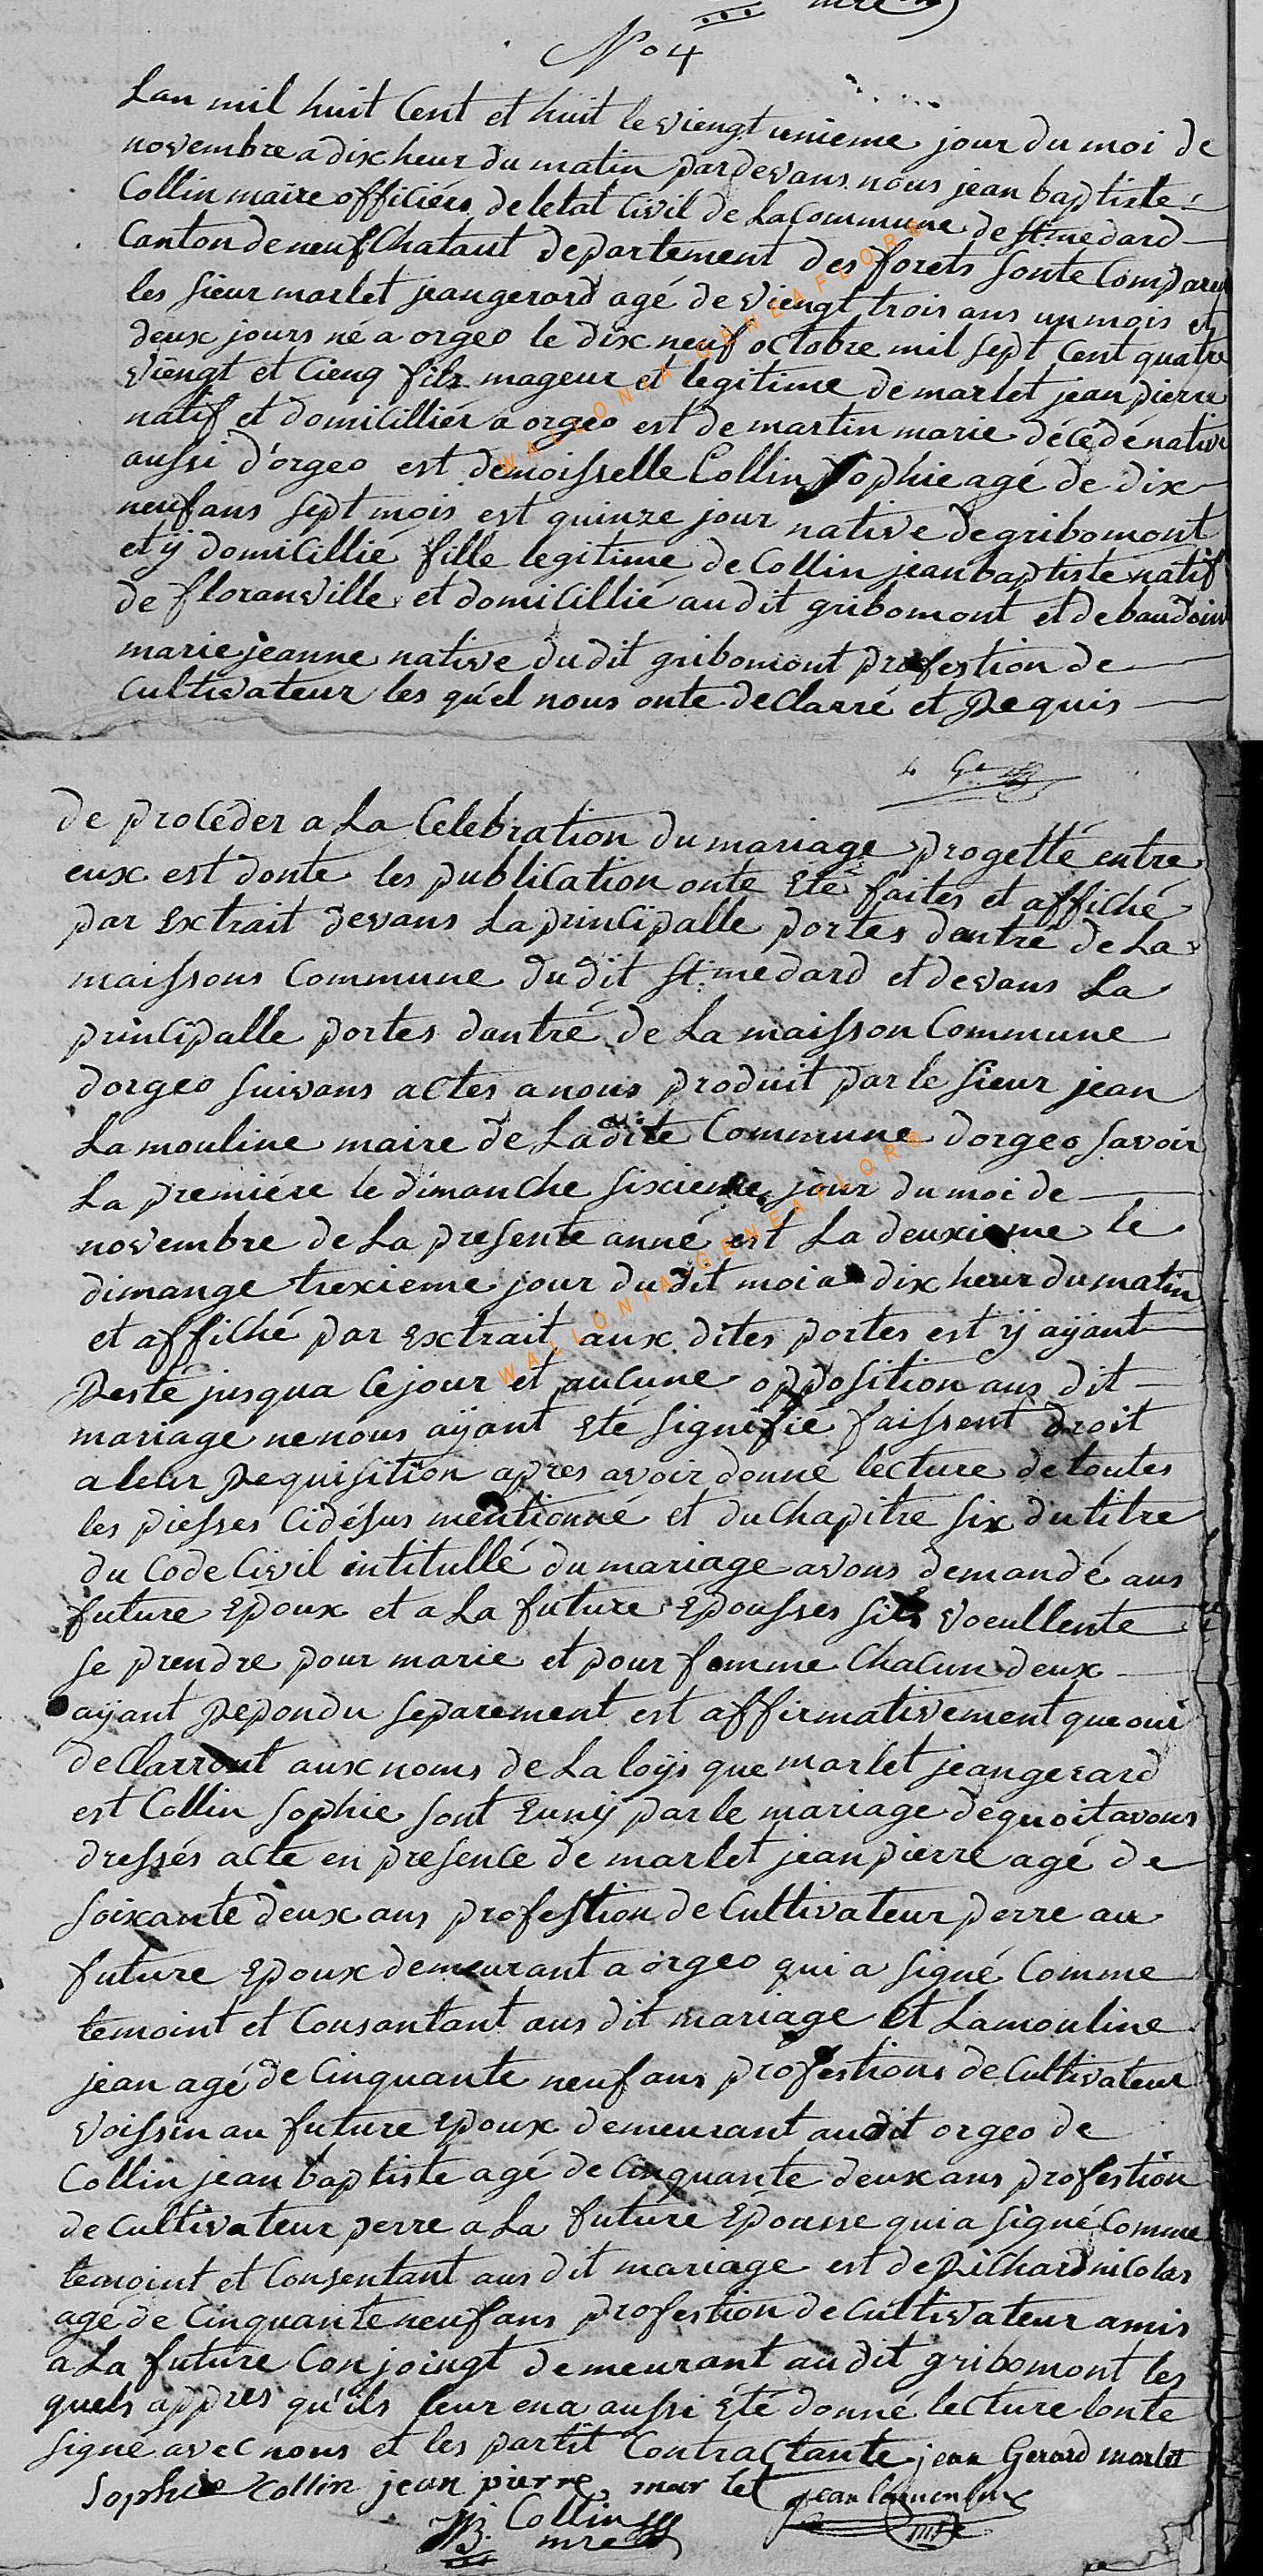 N° 4
Lan mil huit Cent et huit le viengt unieme jour du moi de
novembre a dix heur du matin pardevans nous jean baptiste
Collin maire officiées de letat Civil de La Commune de St. medard
Canton de neufChataut departement des forets sonte Comparu
les sieur marlet jean gerard agé de viengt trois ans un mois et
deux jours né a orgeo le dix neuf octobre mil sept Cent quatre
viengt et Cienq fils mageur et legitime de marlet jean pierre
natif et domicilliér a orgeo est de martin marie décédé native
aussi d'orgeo est demoisselle Collin Sophie agé de dix
neuf ans sept mois est quinze jour native de gribomont
et ÿ domicillié fille legitime de Collin jean baptiste natif
de floranville et domicillié audit gribomont et de baudoin
marie jeanne native dudit gribomont profestion de
Cultivateur les qu'el nous onte declarré et Requis
de proceder a La Celebration du mariage progetté entre
eux est donte les publication onte Eté faites et affiché
par Extrait devans La principalle portes dentré de La
maissons Commune dudit St. medard et devans La
principalle portes dantré de La maisson Commune
dorgeo suivans actes a nous produit par le sieur jean
Lamouline maire de Ladite Commune dorgeo savoir
La premiére le dimanche sixieme jour du moi de
novembre de La presente anné est La deuxieme le
dimange trexieme jour dudit moi a dix heur du matin
et affiché par Extrait aux dites portes est ÿ aÿant
Resté jusqua Ce jour et aucune opposition aus dit
mariage ne nous aÿant Eté signifié faissent droit
a leur Requisition apres avoir donné lecture de toutes
les piesses Cidésus mentionné et du Chapitre six du titre
du Code Civil intitullé du mariage avons demandé aus
future Epoux et a La future Epousses sils voeullente
se prendre pour marie et pour femme Chacun deux
aÿant Repondu separement est affirmativement que oui
declarront aux noms de La loÿs que marlet jean gerard
est Collin Sophie sont Eunÿ par le mariage de quoit avons
dressés acte en presence de marlet jean pierre agé de
soixante deux ans profestion de Cultivateur perre au
future Epoux demeurant a orgeo qui a signé Comme
temoint et Consantant aus dit mariage et Lamouline
jean agé de Cinquante neuf ans profestions de Cultivateur
voissin au future Epoux demeurant audit orgeo de
Collin jean baptiste agé de Cinquante deux ans profestion
de Cultivateur perre a La future Epousse qui a signé Comme
temoint et Consentant aus dit mariage est de Richard nicolas
agé de Cinquante neuf ans profestion de Cultivateur amis
a La future Conjoingt demeurant audit gribomont les
quels appres qu'ils leur en a aussi été donné lecture lonte
signé avec nous et les partit Contractante jean Gerard marlet
Sophie Collin jean pierre mar let jean lamouline
JB. Collin
mre
WALLONIA.GENEAFLORE
WALLONIA.GENEAFLORE